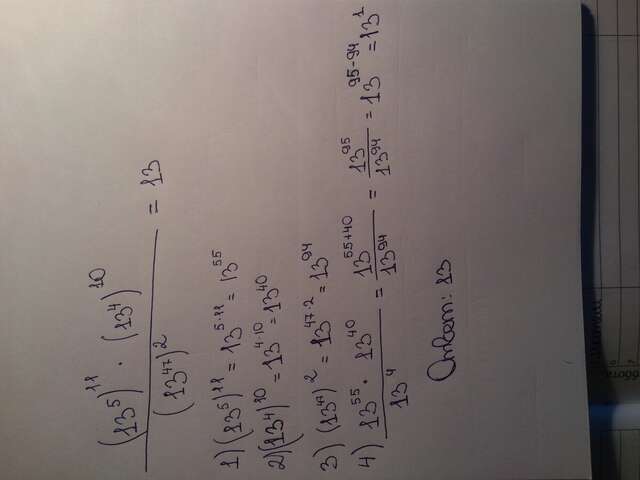 (13⁵)¹¹ · (13⁴)¹⁰ / (13⁴⁷)² = 13
1) (13⁵)¹¹ = 13⁵·¹¹ = 13⁵⁵
2) (13⁴)¹⁰ = 13⁴·¹⁰ = 13⁴⁰
3) (13⁴⁷)² = 13⁴⁷·² = 13⁹⁴
4) 13⁵⁵ · 13⁴⁰ / 13⁴ = 13⁵⁵⁺⁴⁰ / 13⁹⁴ = 13⁹⁵ / 13⁹⁴ = 13⁹⁵⁻⁹⁴ = 13¹
Ответ: 13